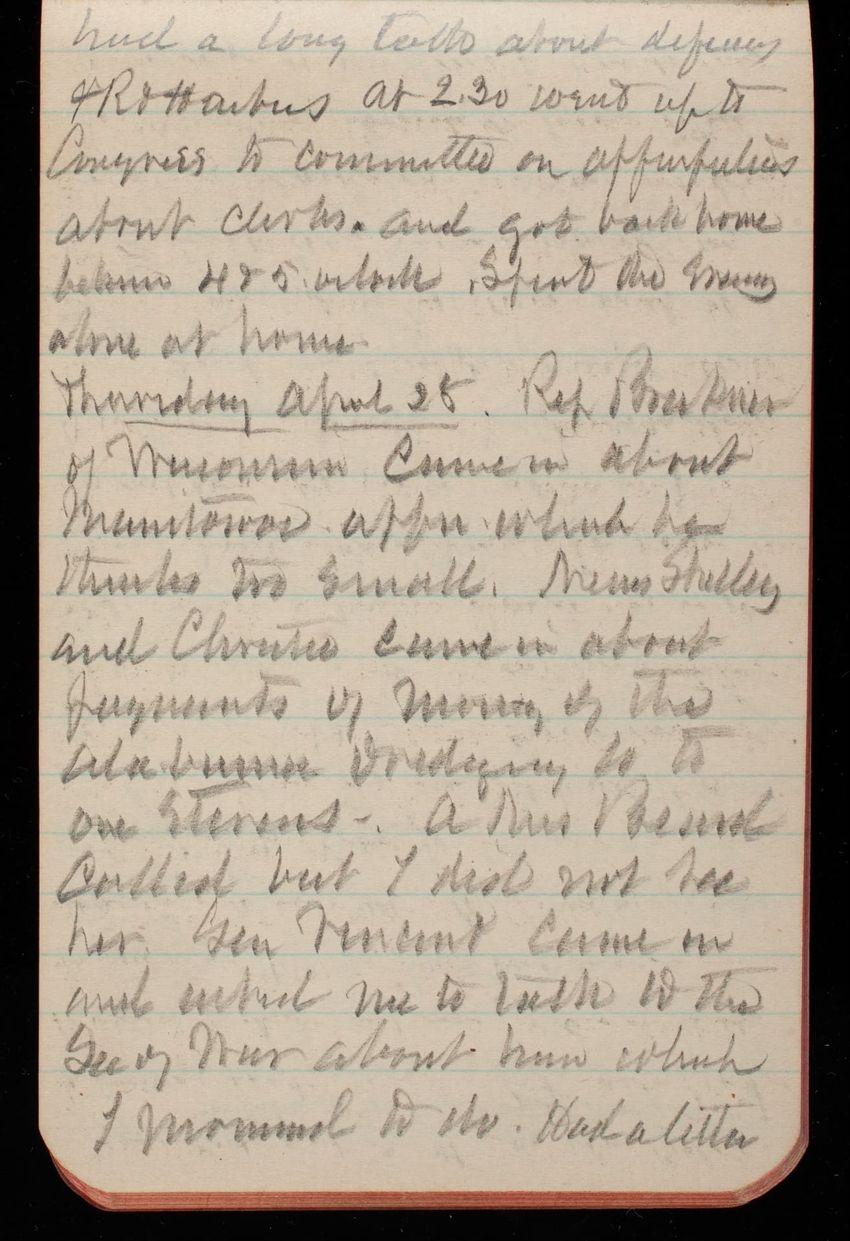 had a long talk about defenses
& R & Harbors at 2.30 went up to
Congress to committee on
about clerks. and got back home
between 4 & 5 oclock. Spent the Evening
alone at home
Thursday April 25. Rep
of Wisconsin Came in about
Manitowoc appn which he
thinks too small. Messrs Shelley
and Christie came in about
payments of money of the
Alabama Dredging Co to
one Stevens -. A Mrs Beard
Called but I did not see
her. Gen Vincent Came in
and asked me to talk to the
Sec of War about him which
I promised to do. Had a letter